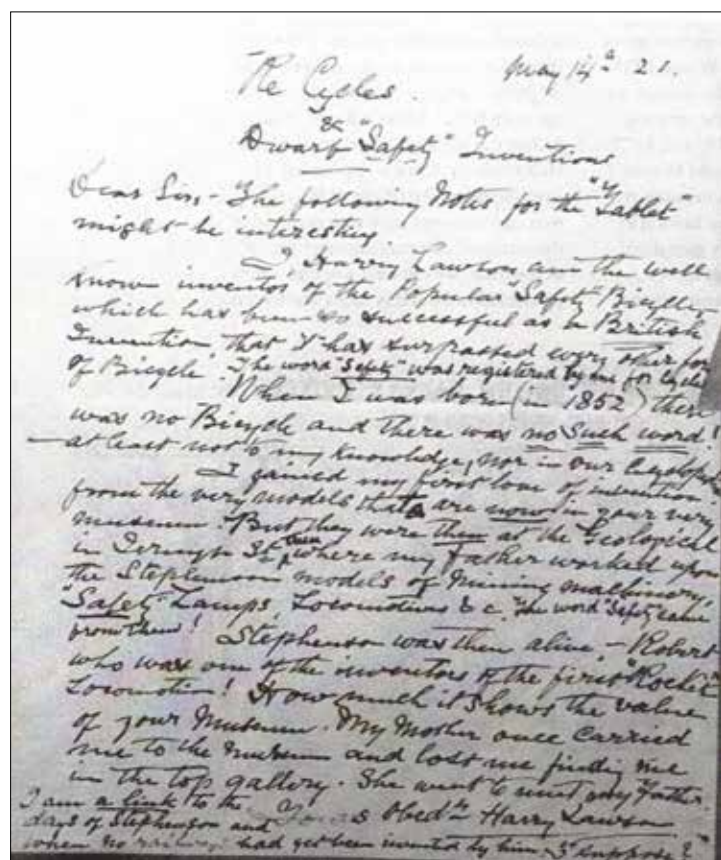 May 14th 21.
Re Cycles.
&
Dwarf "Safety" Inventions
Dear Sir, - The following Notes for the "Tablet"
might be interesting
I, Harry Lawson am the well
known inventor of the Popular "Safety" Bicycle,
which has been so successful as a British
Invention, that it has surpassed every other for
of Bicycle. The word "Safety" was registered by me for Cycles
When I was born (in 1852) there
was no Bicycle and there was no such word!
- at least not to my knowledge, nor in our
I gained my first love of invention
from the very models that are now in your very
museum. But they were then at the Geological
in Jermyn St, then where my Father worked upon
the Stephenson models of Mining machinery,
"Safety" Lamps, Locomotives &c. The word "Safety" came
from them!
Stephenson was then alive, - Robert
who was one of the inventors of the first "Rocket"
Locomotive! How much it shows the value
of your Museum. My Mother once carried
me to the museum and lost me finding me
in the top gallery. She went to meet my Father.
I am a link to the
Yours Obedtly Harry Lawson
days of Stephenson and
when no railways had yet been invented by him I suppose?